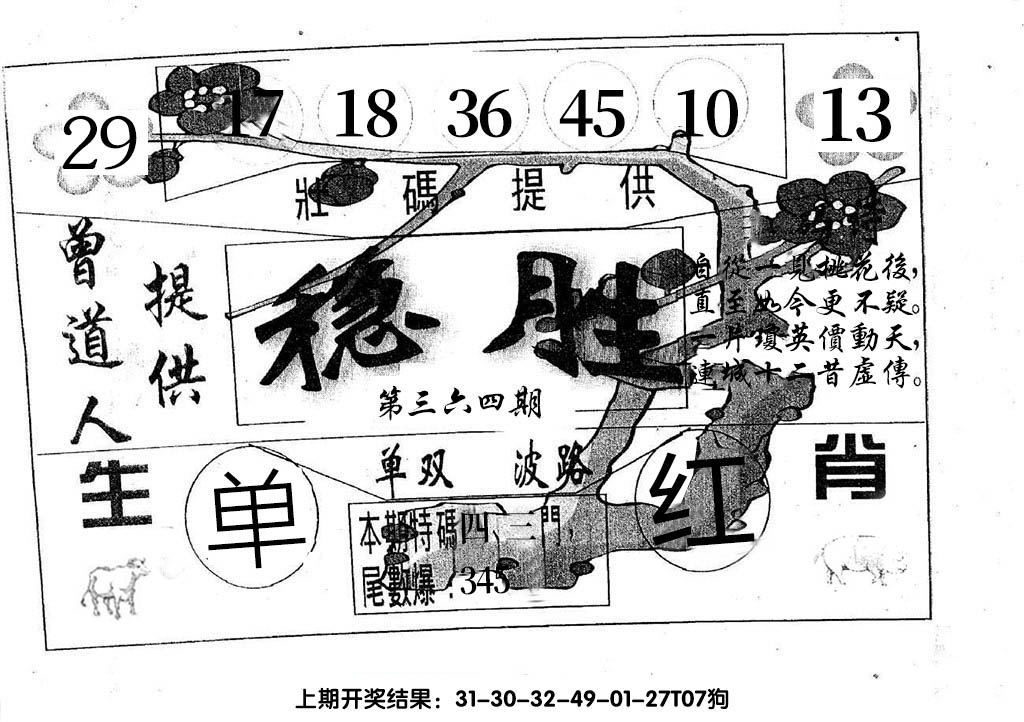 29 17 18 36 45 10 13
壯碼提供
特
曾道人
提供
稳胜
第三六四期
自從一見桃花後，
直至如今更不疑。
一片瓊英價動天，
連城十二昔虛傳。
单双 波路
生肖
单
红
本期特碼四、三門，
尾數爆：345
上期开奖结果：31-30-32-49-01-27T07狗